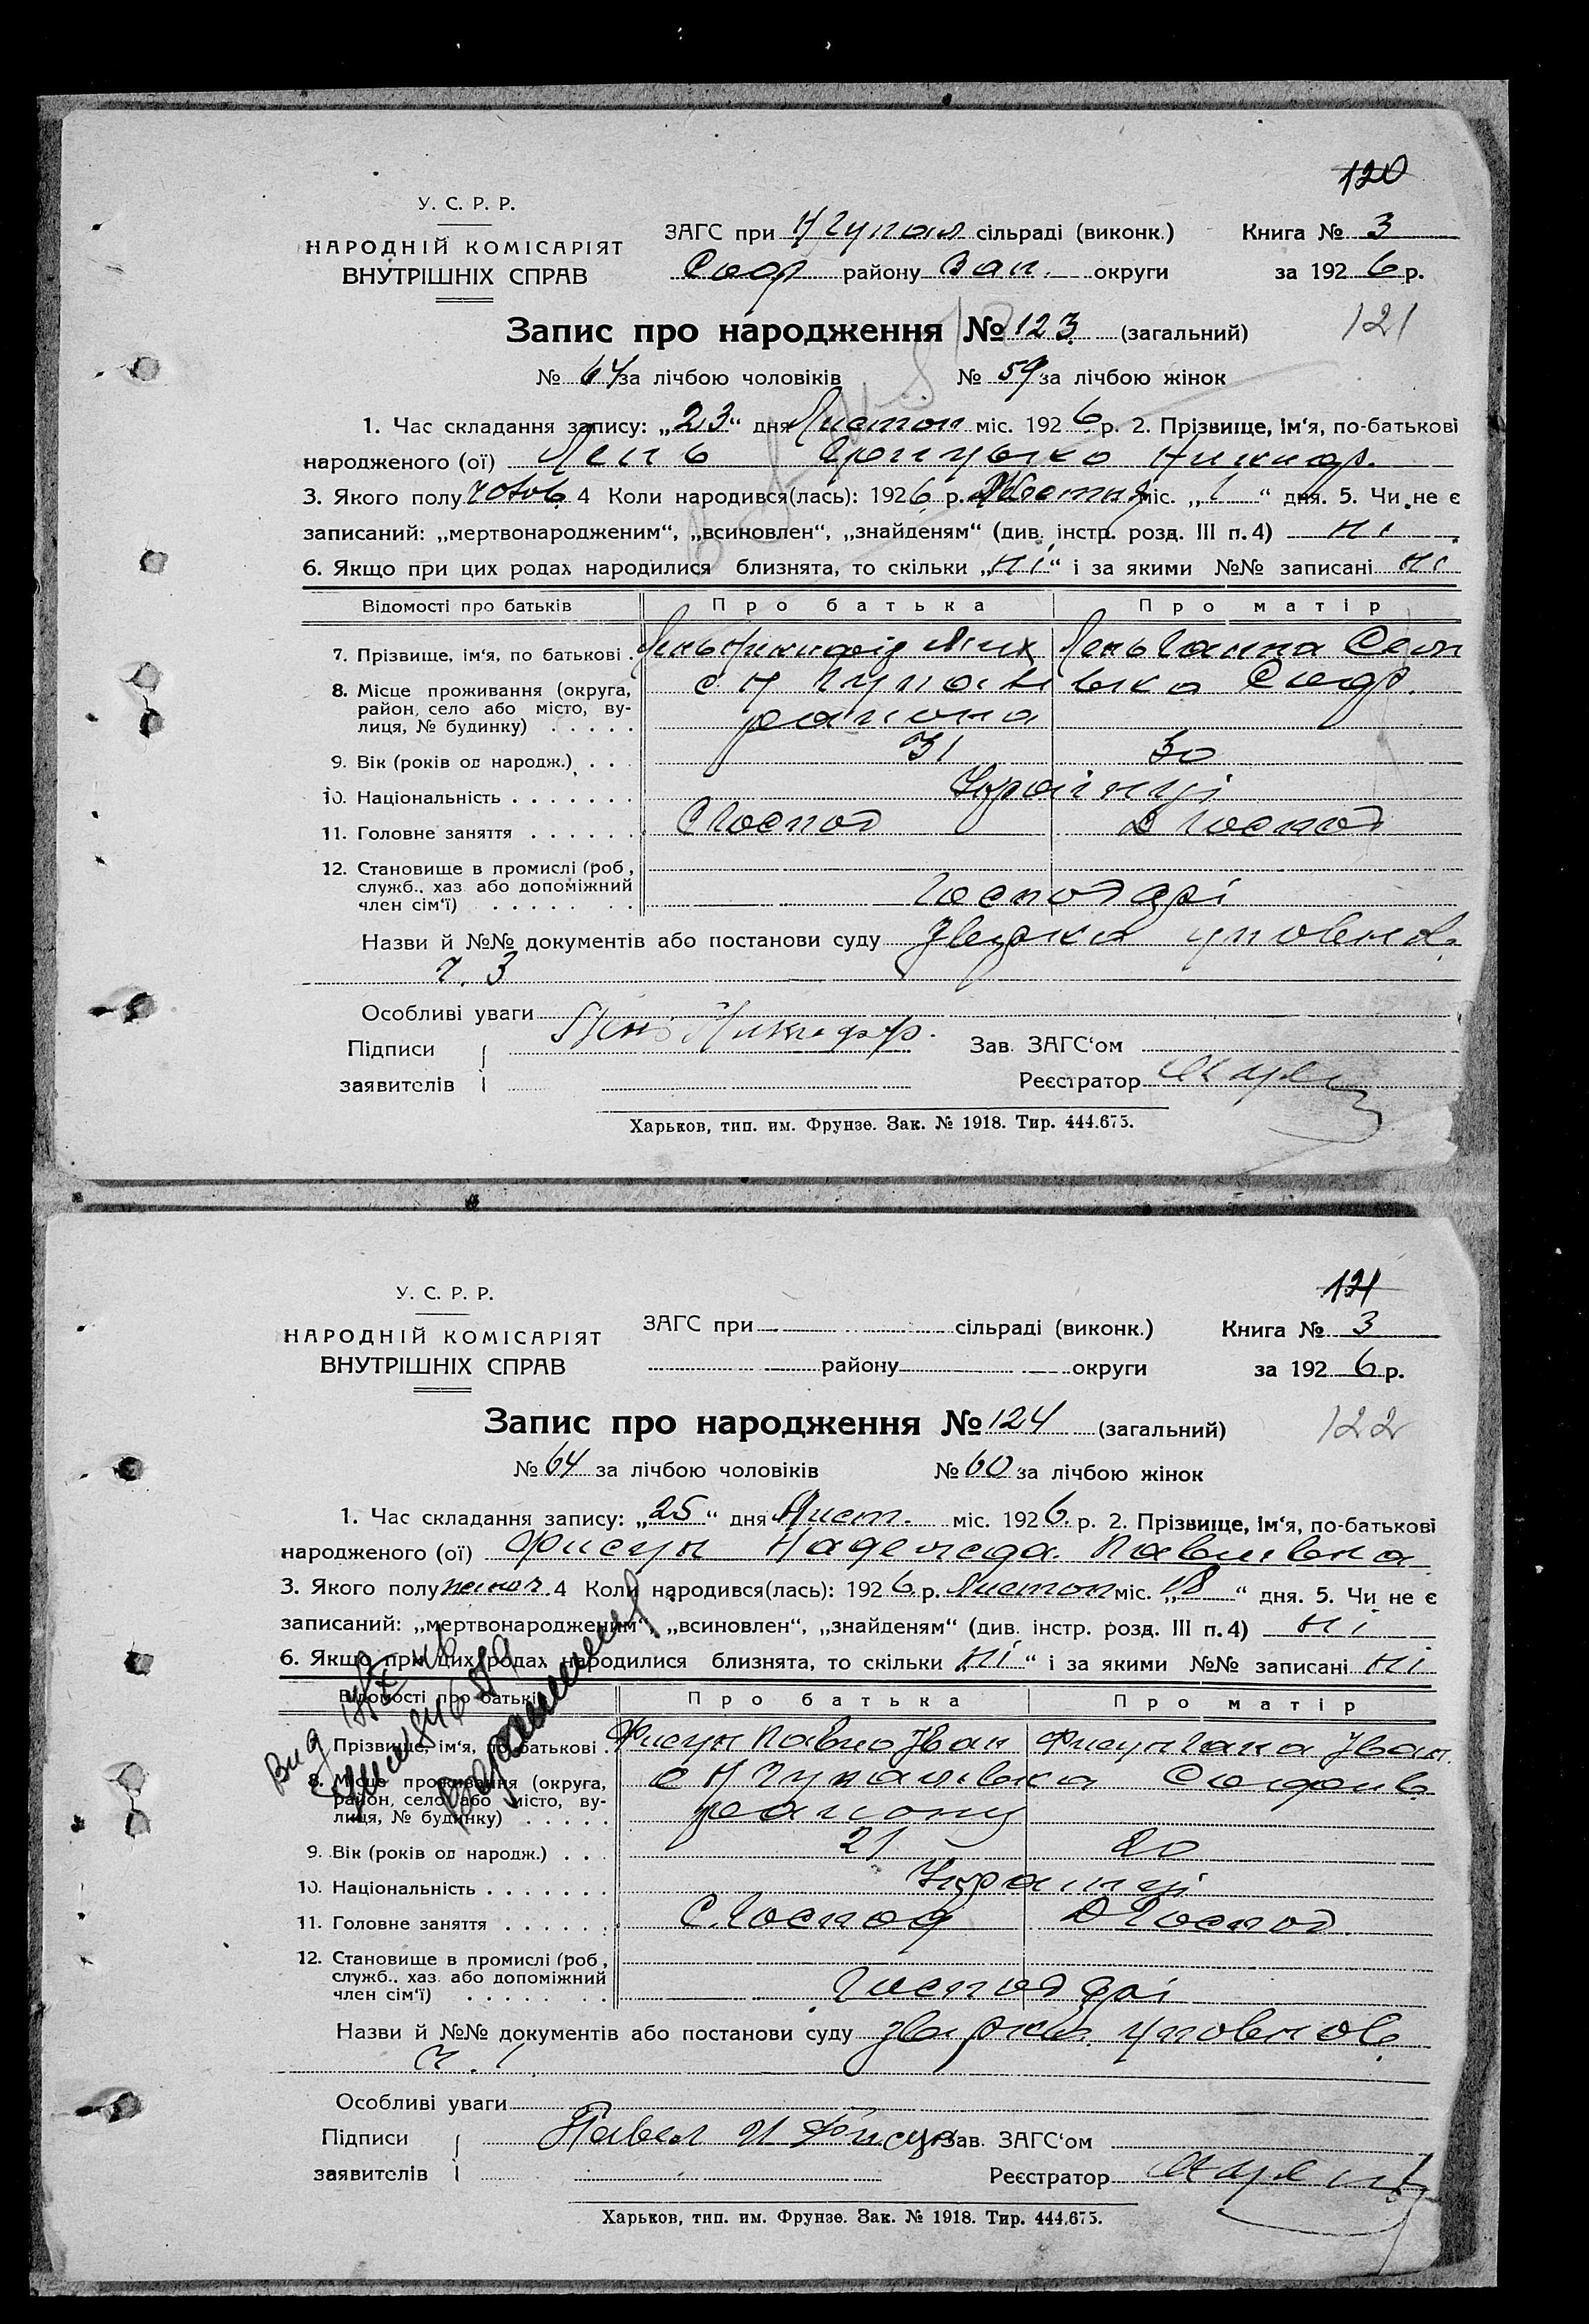 120
У. С. Р. Р.
НАРОДНІЙ КОМІСАРІЯТ
ВНУТРІШНІХ СПРАВ
ЗАГС при Н Чупал сільраді (виконк.)
району Зап. округи
Книга № 3
за 1926 р.
Запис про народження № 123 (загальний)
121
№ 64 за лічбою чоловіків № 59 за лічбою жінок
1. Час складання запису: „23“ дня Листоп міс. 1926 р. 2. Прізвище, ім‘я, по-батькові
народженого (ої) Лень
3. Якого полу чолов. 4 Коли народився(лась): 1926 р. міс. „ “ дня. 5. Чи не є
записаний: „мертвонародженим“, „всиновлен“, „знайденям“ (див. інстр. розд. III п. 4) ні
6. Якщо при цих родах народилися близнята, то скільки „ні“ і за якими №№ записані ні
Відомості про батьків Про батька Про матір
7. Прізвище, ім‘я, по батькові . Лень Лень Ганна
8. Місце проживання (округа, район, село або місто, вулиця, № будинку) . . . . . с. Н
района
9. Вік (років од народж.) . . . 31 30
10. Національність . . . . . . . Українці
11. Головне заняття . . . . . . С Господ Д Господ
12. Становище в промислі (роб, служб.. хаз. або допоміжний член сім‘ї) . . . . . . . Господарі
Назви й №№ документів або постанови суду уповнов.
ч. 3
Особливі уваги
Підписи
заявителів
Зав. ЗАГС‘ом
Реєстратор
Харьков, тип. им. Фрунзе. Зак. № 1918. Тир. 444.675.
121
У. С. Р. Р.
НАРОДНІЙ КОМІСАРІЯТ
ВНУТРІШНІХ СПРАВ
ЗАГС при сільраді (виконк.)
району округи
Книга № 3
за 1926 р.
Запис про народження № 124 (загальний)
122
№ 64 за лічбою чоловіків № 60 за лічбою жінок
1. Час складання запису: „25“ дня Лист. міс. 1926 р. 2. Прізвище, ім‘я, по-батькові
народженого (ої) Фисун Надежеда Павлівна
3. Якого полу жіноч. 4 Коли народився(лась): 1926 р. Листоп міс. „18“ дня. 5. Чи не є
записаний: „мертвонародженим“, „всиновлен“, „знайденям“ (див. інстр. розд. III п. 4) ні
6. Якщо при цих родах народилися близнята, то скільки „ні“ і за якими №№ записані ні
Відомості про батьків Про батька Про матір
Прізвище, ім‘я, по батькові . Фисун Павло Іван Фисун Гана Іван.
8. Місце проживання (округа, район, село або місто, вулиця, № будинку) . . . . . с Н Чупалівка
району
9. Вік (років од народж.) . . . 21 20
10. Національність . . . . . . . Українці
11. Головне заняття . . . . . . С. Господ Д Господ.
12. Становище в промислі (роб, служб.. хаз. або допоміжний член сім‘ї) . . . . . . . Господарі
Назви й №№ документів або постанови суду уповнов.
ч. 1
Особливі уваги
Підписи
заявителів
Павел И Фисун
Зав. ЗАГС‘ом
Реєстратор
Харьков, тип. им. Фрунзе. Зак. № 1918. Тир. 444.675.